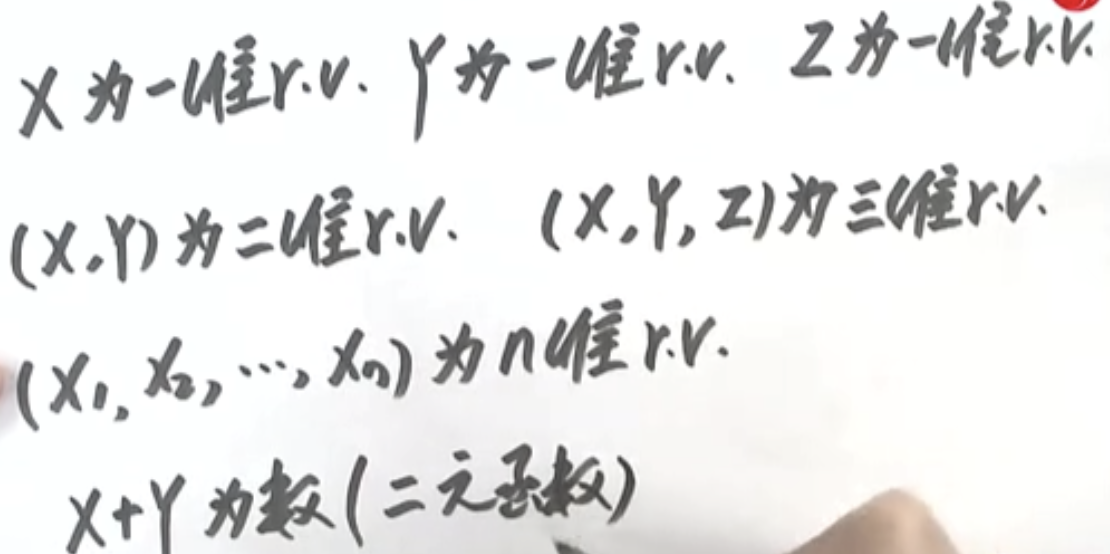 X为一维r.v. Y为一维r.v. Z为一维r.v.
(X,Y)为二维r.v. (X,Y,Z)为三维r.v.
(X₁,X₂,…,Xₙ)为n维r.v.
X+Y为数(二元函数)